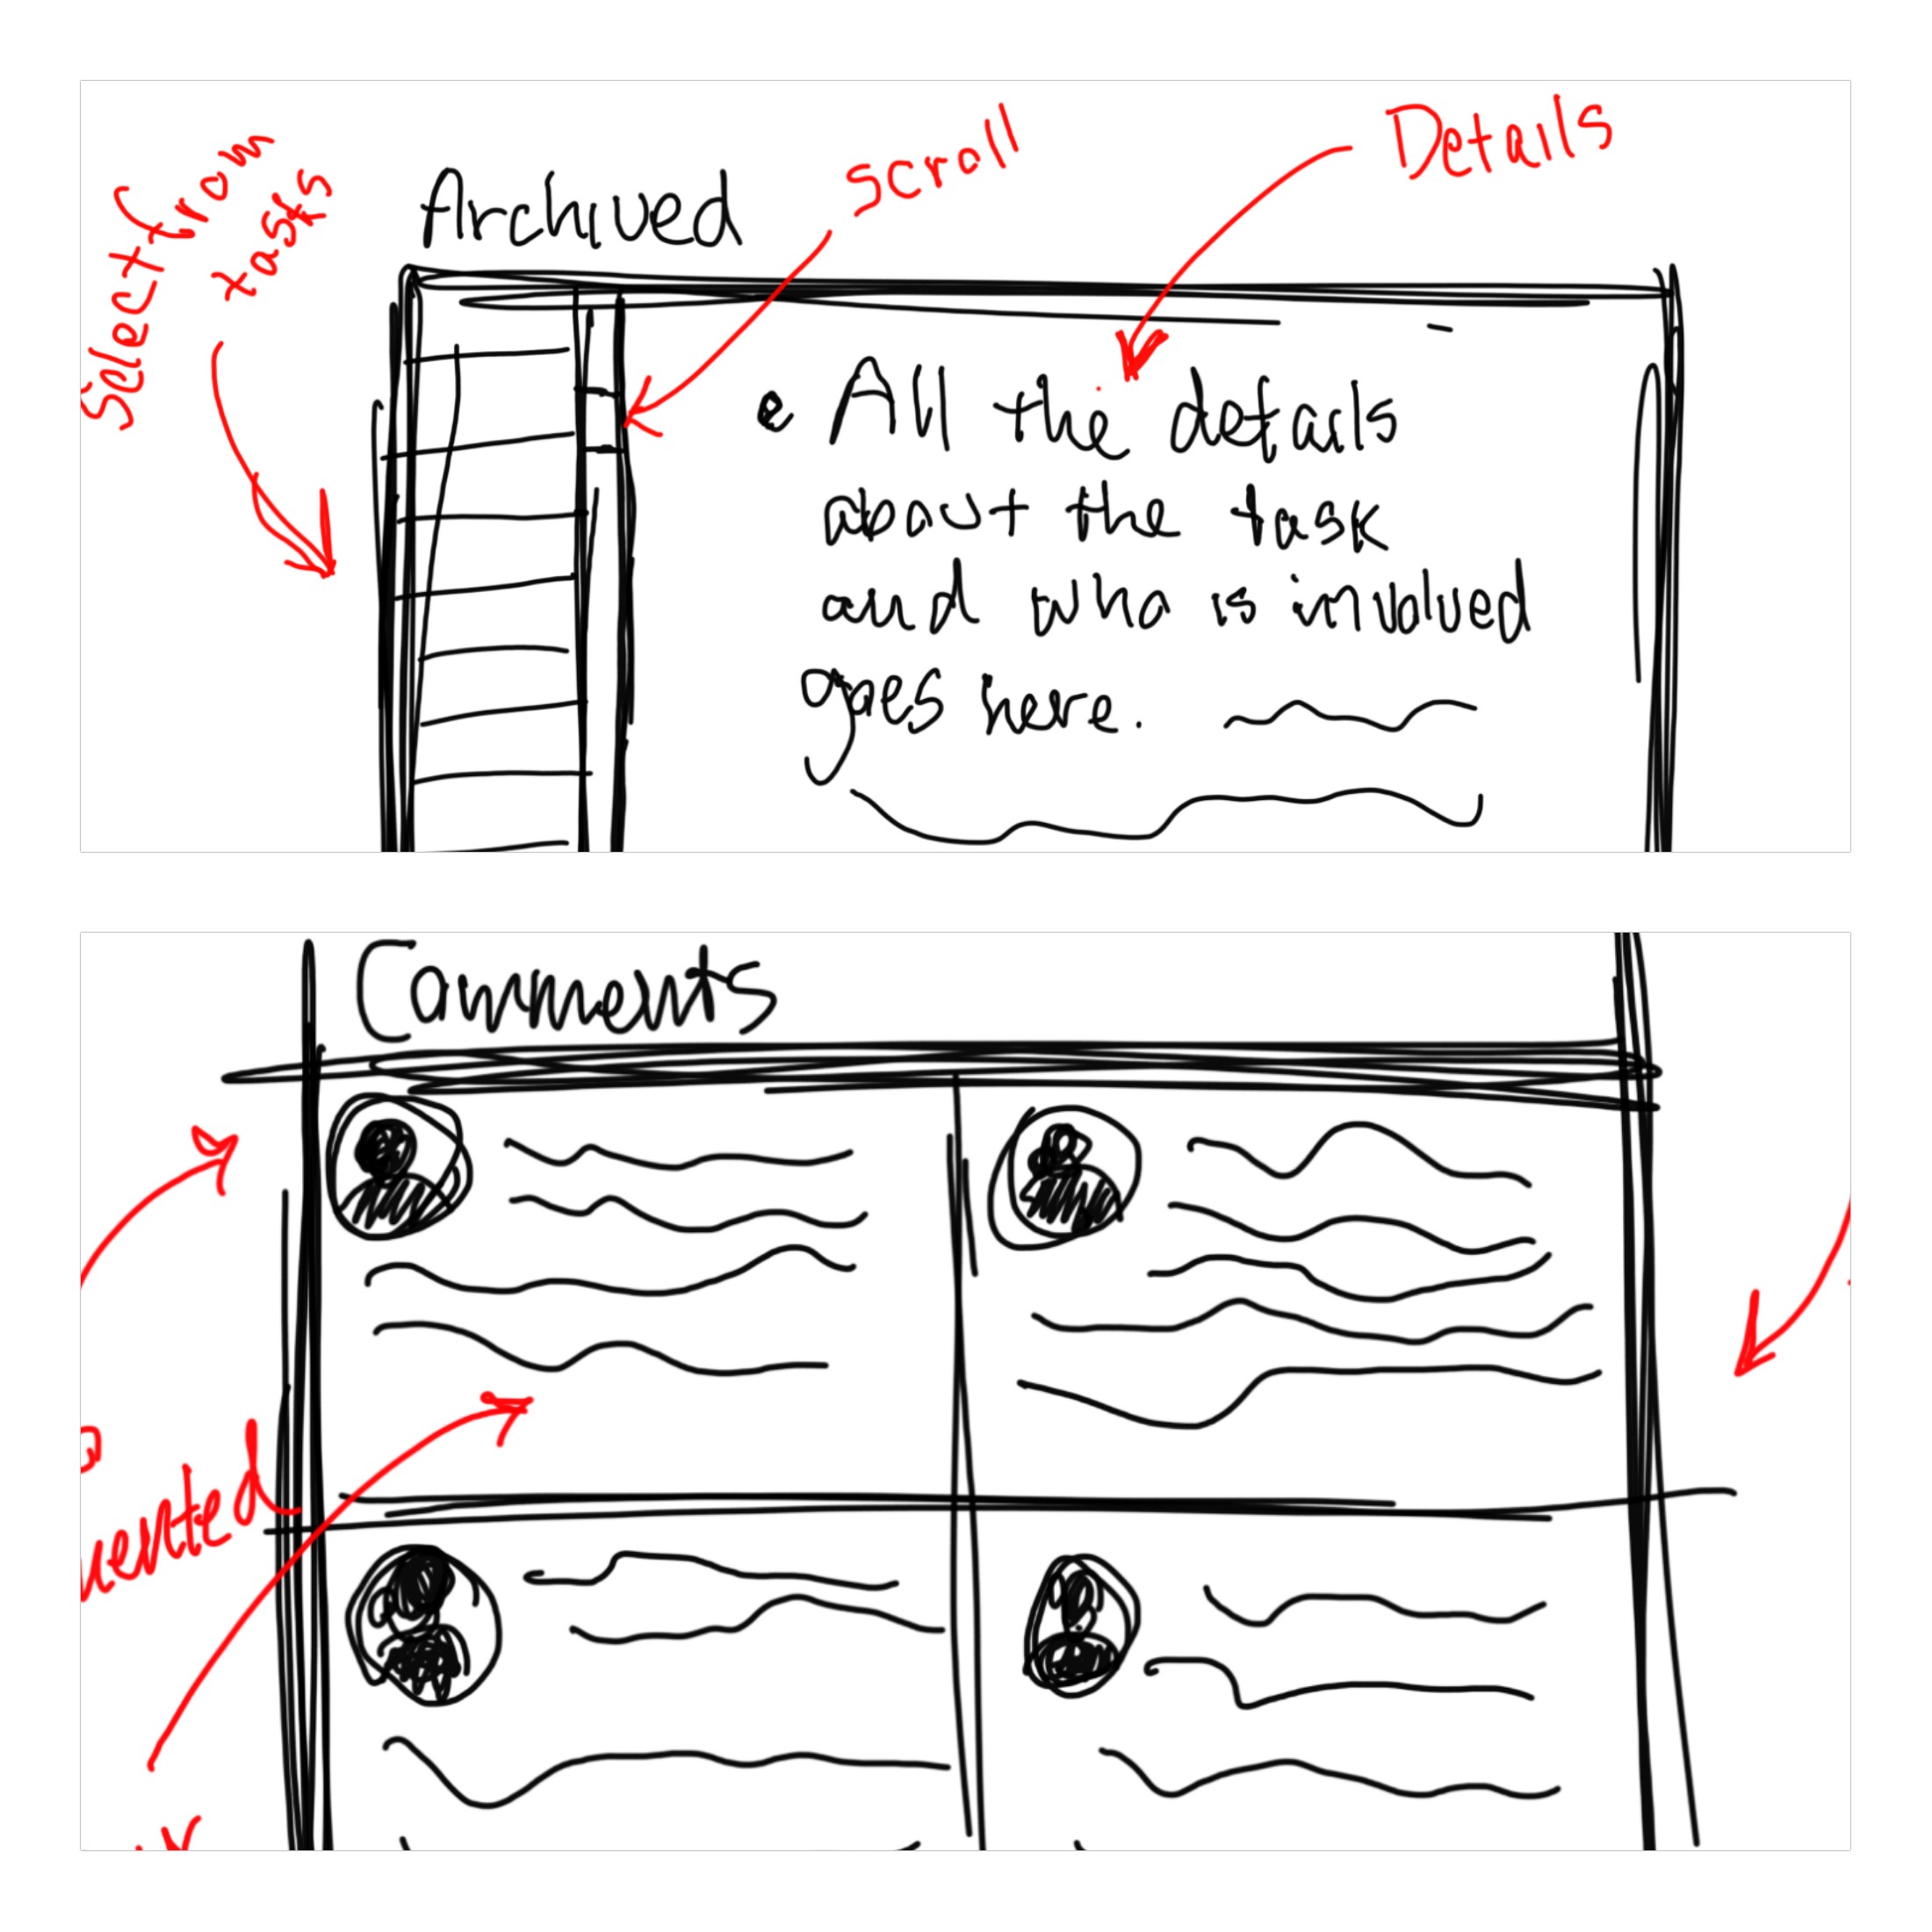 Select from
tasks
Archived
scroll
Details
All the details
about the task
and who is involved
goes here.
Comments